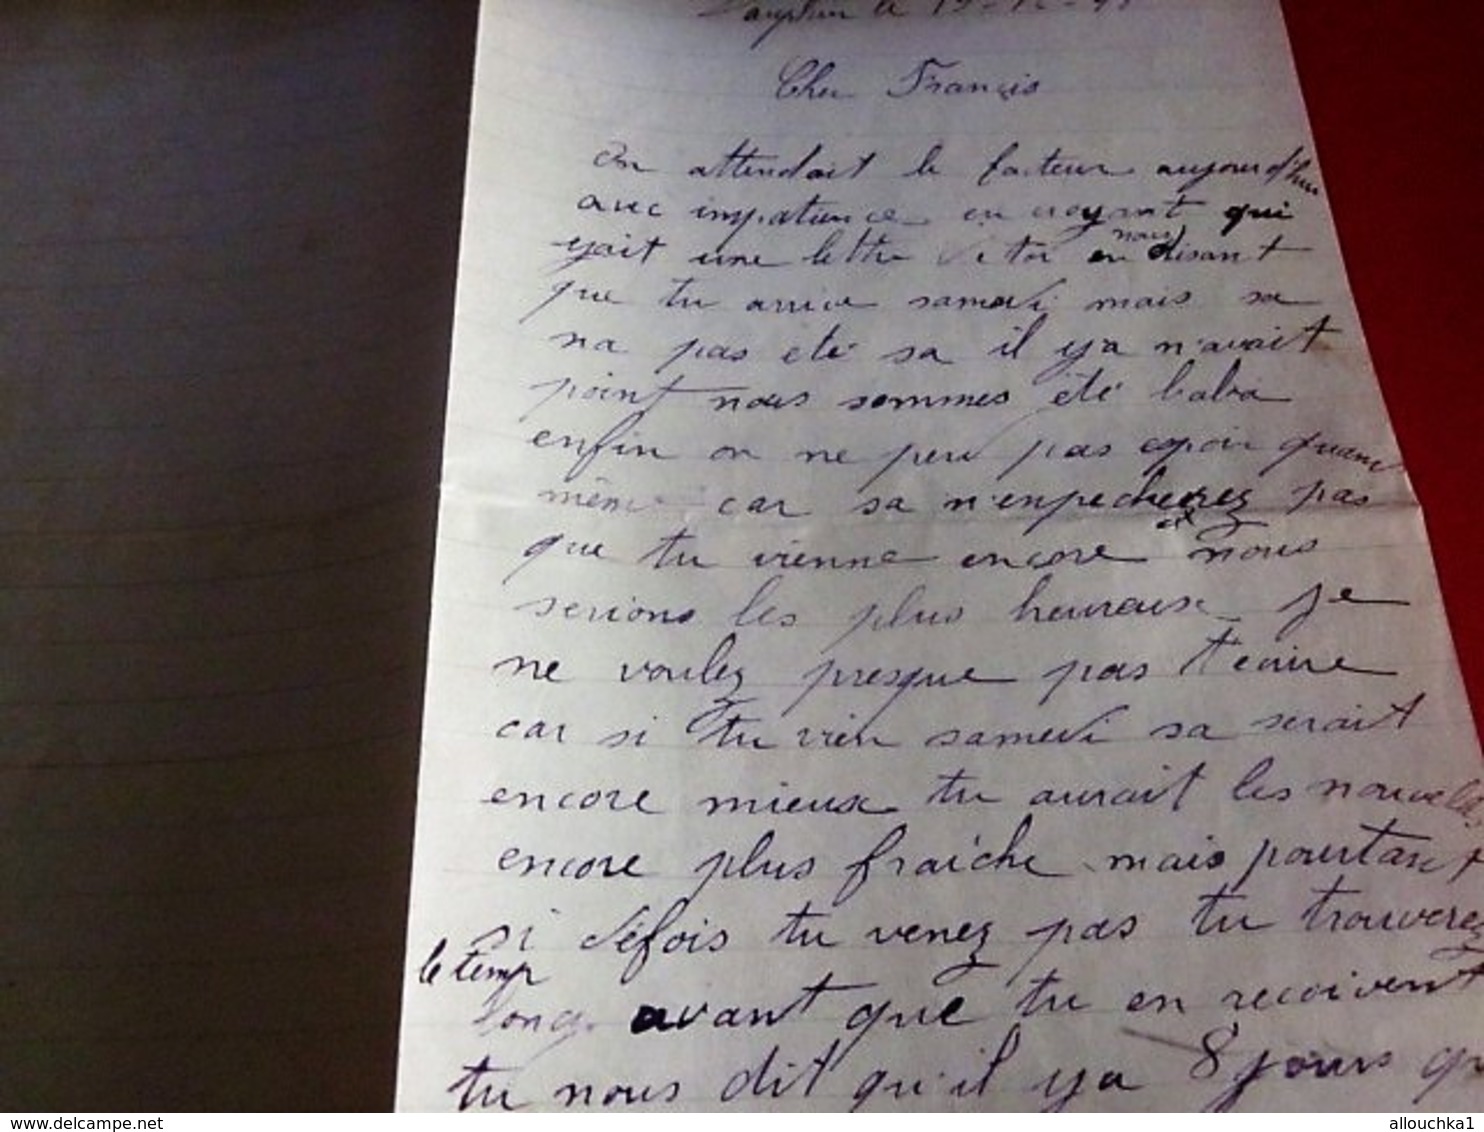 Cher Francis
On attendait le facteur aujourd'hui
avec impatience en croyant qui
yait une lettre de toi en nous disant
que tu arrive samedi mais sa
na pas été sa il ya n'avait
point nous sommes été baba
enfin on ne peu pas espoir quand
même car sa n'enpecherez pas
que tu vienne encore et nous
serions les plus heureuse je
ne voulez presque pas t'ecrire
car si tu vien samedi sa serait
encore mieux tu aurait les nouvelles
encore plus fraîche mais pourtant
si défois tu venez pas tu trouverez
le temp
long avant que tu en recoivent
tu nous dit qu'il ya 8 jours
www.delcampe.net
allouchka1